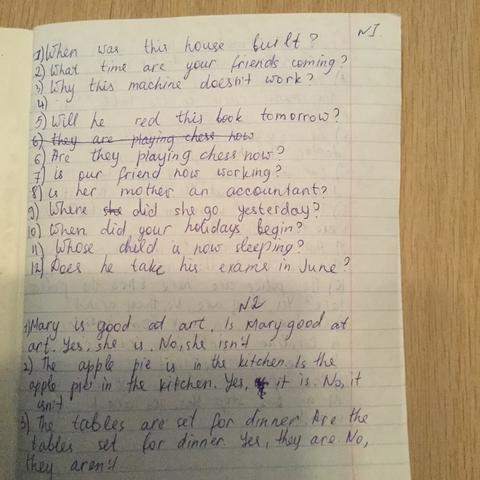 N1
1) When was this house built?
2) What time are your friends coming?
3) Why this machine doesn't work?
4)
5) Will he red this book tomorrow?
6) they are playing chess now
6) Are they playing chess now?
7) is our friend now working?
8) is her mother an accountant?
9) Where she did she go yesterday?
10) When did your holidays begin?
11) Whose child is now sleeping?
12) Does he take his exams in June?
N2
1) Mary is good at art. Is Mary good at
art. Yes, she is. No, she isn't
2) The apple pie is in the kitchen. Is the
apple pie in the kitchen. Yes, it is. No, it
isn't
3) The tables are set for dinner Are the
tables set for dinner Yes, they are No,
they aren't